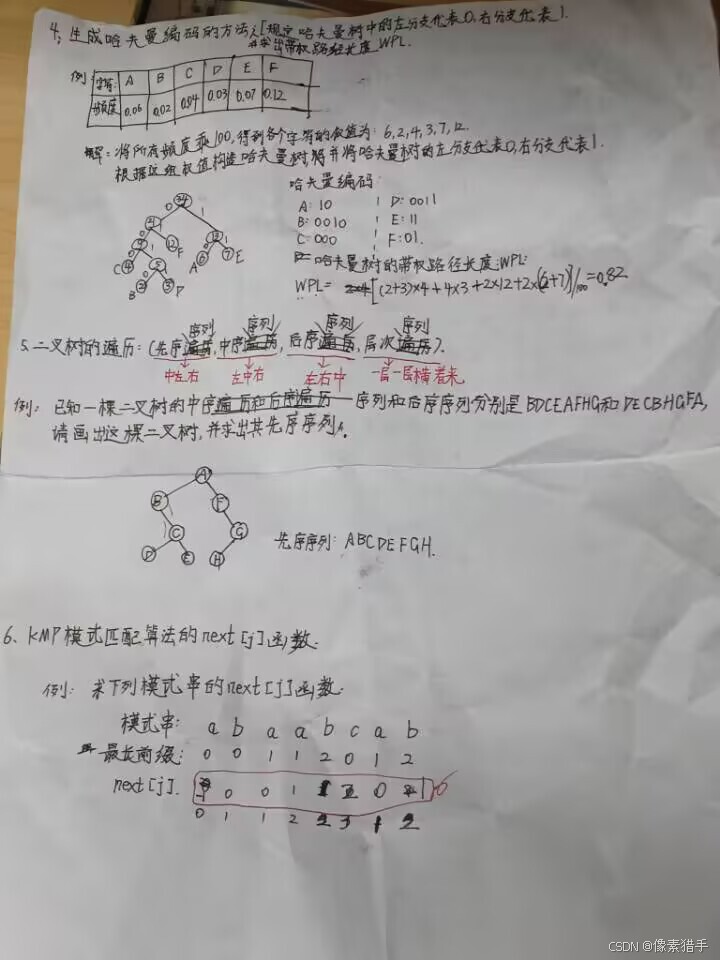 4、生成哈夫曼编码的方法:[规定哈夫曼树中的左分支代表0,右分支代表1.
并求出带权路径长度WPL.
例:
字符: A B C D E F
频度 0.06 0.02 0.04 0.03 0.07 0.12
解:将所有频度乘100,得到各个字符的权值为:6,2,4,3,7,12.
根据这组权值构造哈夫曼树,并将哈夫曼树的左分支代表0,右分支代表1.
哈夫曼编码:
A:10 D:0011
B:0010 E:11
C:000 F:01.
34
0 1
F
C
A E
B D
哈夫曼树的带权路径长度WPL:
WPL= [(2+3)×4+4×3+2×12+2×(6+7)]/100=0.82
5.二叉树的遍历:(先序序列,中序序列,后序序列,层次序列).
中左右 左中右 左右中 一层一层横着来
例:已知一棵二叉树的中序遍历和后序遍历序列和后序序列分别是BDCEAFHG和DECBHGFA,
请画出这棵二叉树,并求出其先序序列.
A
B F
C G
D E H
先序序列:ABCDEFGH.
6、KMP模式匹配算法的next[j]函数.
例:求下列模式串的next[j]函数.
模式串: a b a a b c a b
最长前缀: 0 0 1 1 2 0 1 2
next[j]. -1 0 0 1 1 2 0
0 1 1 2 2 3 1 2
CSDN @像素猎手